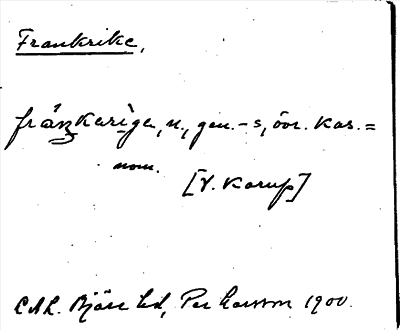 Frankrike,
fränkariga, n, gen. -s, övr. kas. =
nom.
[V. Karup]
Bjäre hd, Per Larsson 1900.